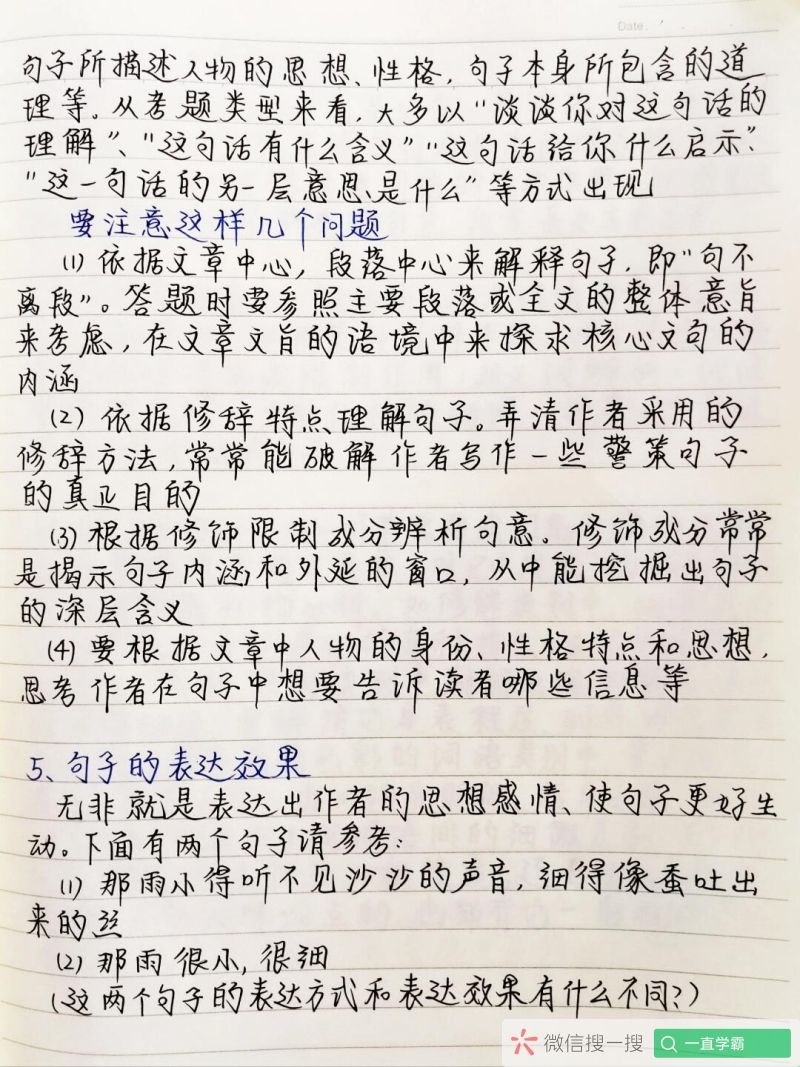 Date.
句子所描述人物的思想、性格，句子本身所包含的道
理等。从考题类型来看，大多以“谈谈你对这句话的
理解”、“这句话有什么含义”“这句话给你什么启示”、
“这一句话的另一层意思是什么”等方式出现
要注意这样几个问题
(1)依据文章中心，段落中心来解释句子，即“句不
离段”。答题时要参照主要段落或全文的整体意旨
来考虑，在文章文旨的语境中来探求核心文句的
内涵
(2)依据修辞特点理解句子。弄清作者采用的
修辞方法，常常能破解作者写作一些警策句子
的真正目的
(3)根据修饰限制成分辨析句意。修饰成分常常
是揭示句子内涵和外延的窗口，从中能挖掘出句子
的深层含义
(4)要根据文章中人物的身份、性格特点和思想，
思考作者在句子中想要告诉读者哪些信息等
5、句子的表达效果
无非就是表达出作者的思想感情、使句子更好生
动。下面有两个句子请参考：
(1)那雨小得听不见沙沙的声音，细得像蚕吐出
来的丝
(2)那雨很小，很细
(这两个句子的表达方式和表达效果有什么不同？)
微信搜一搜 一直学霸